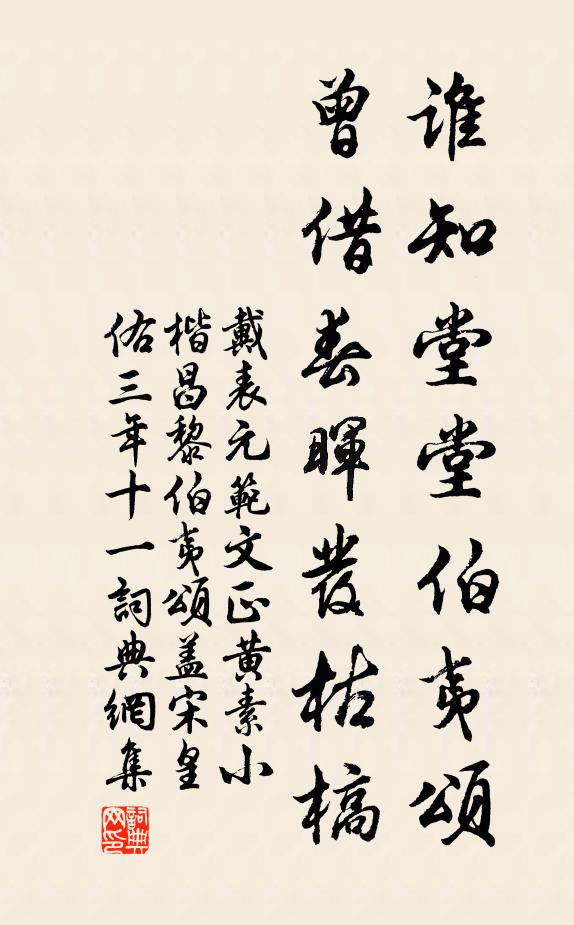 誰知堂堂伯夷頌
曾借春暉發枯槁
戴表元範文正黃素小
楷昌黎伯夷頌蓋宋皇
佑三年十一詞典網集
詞典網印